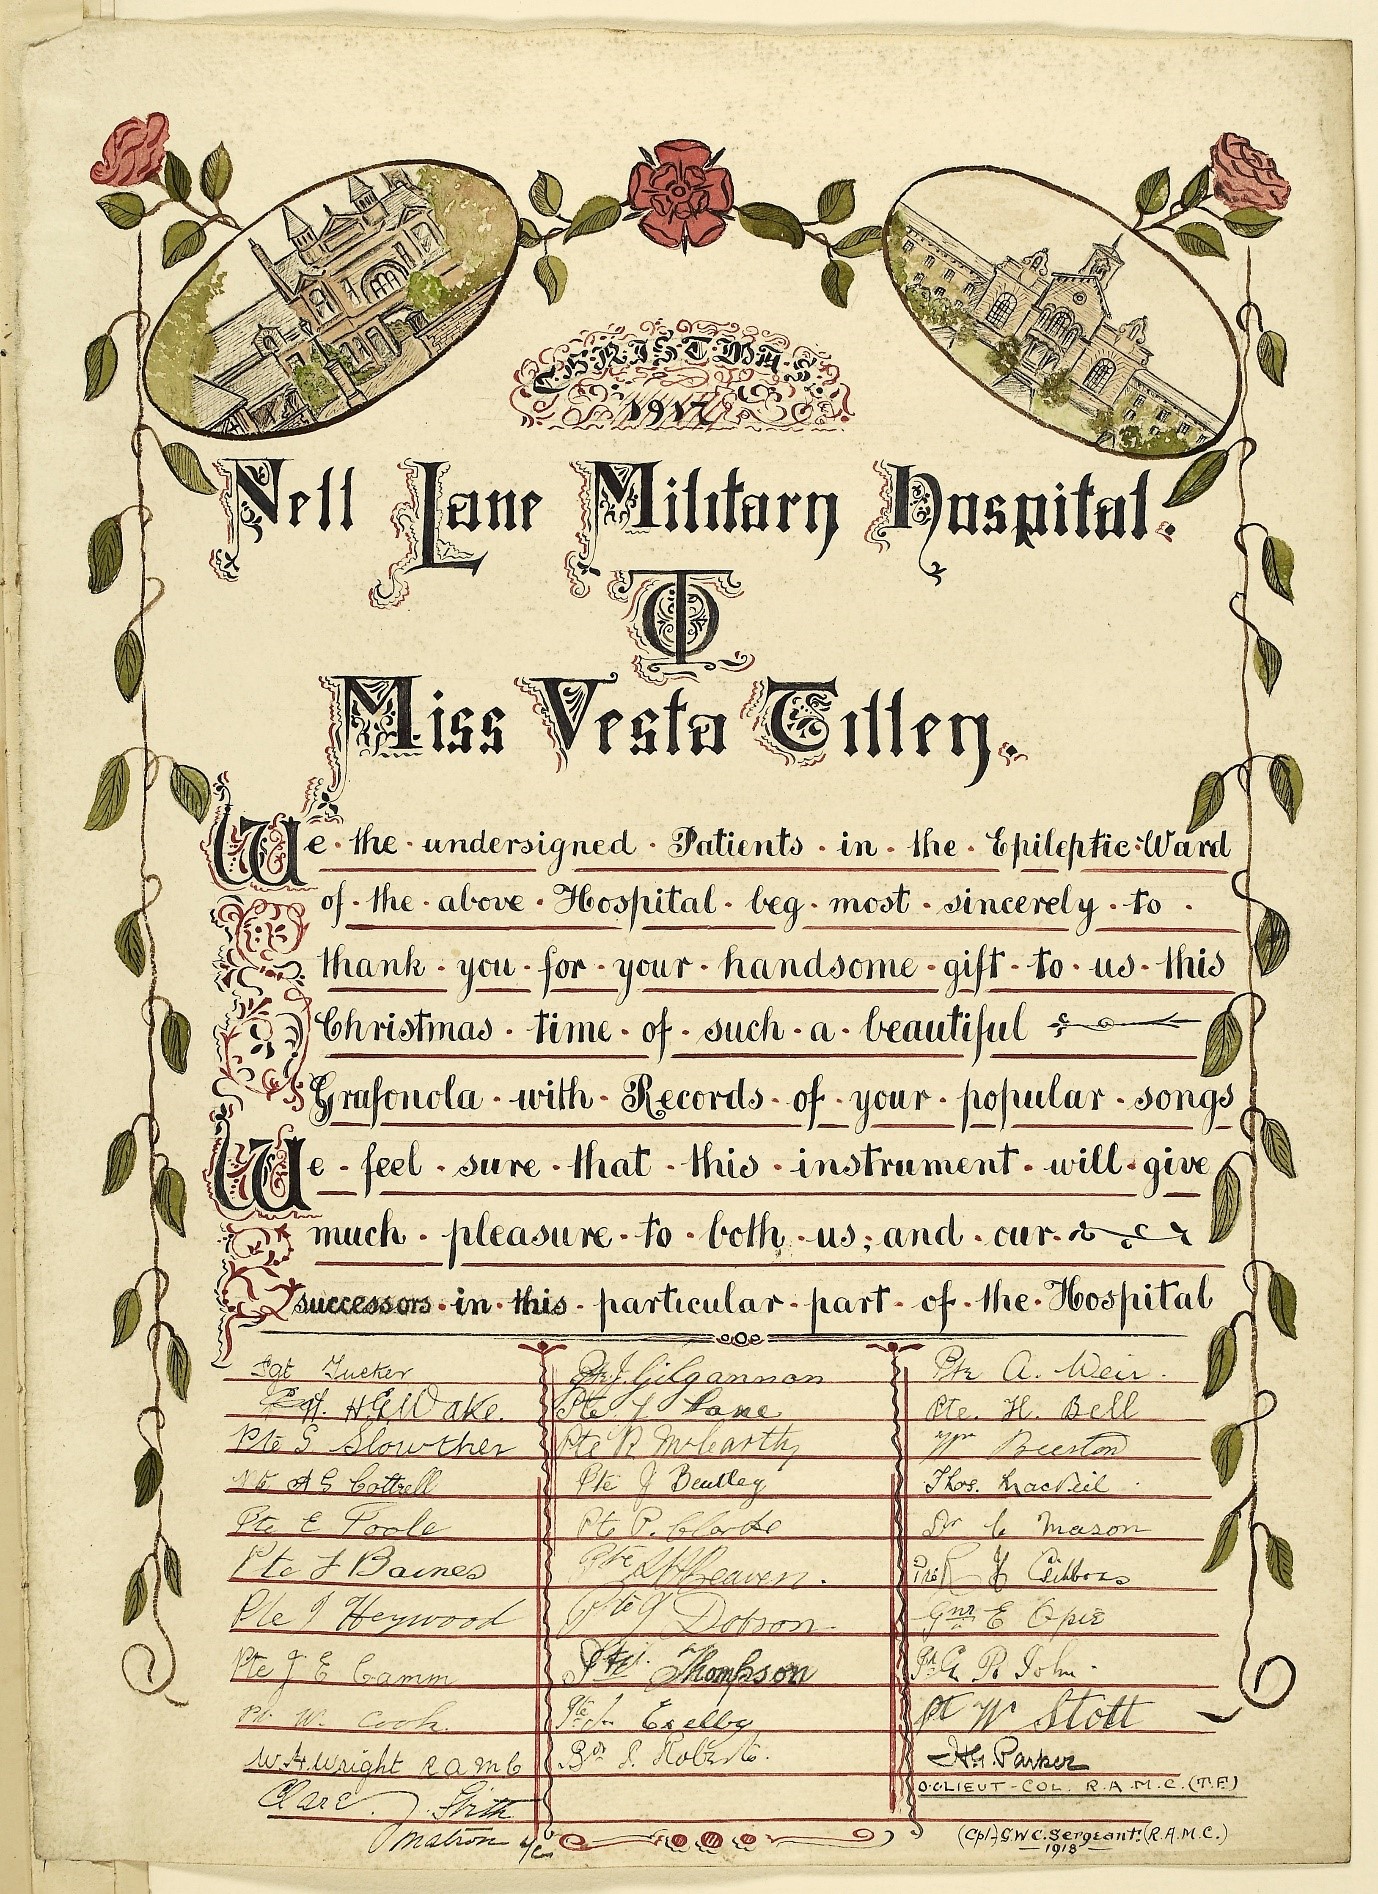 CHRISTMAS
1917
Nell Lane Military Hospital.
TO
Miss Vesta Tilley.
We · the · undersigned · Patients · in · the · Epileptic · Ward
of · the · above · Hospital · beg · most · sincerely · to ·
thank · you · for · your · handsome · gift · to · us · this
Christmas · time · of · such · a · beautiful
Grafonola · with · Records · of · your · popular · songs
We · feel · sure · that · this · instrument · will · give
much · pleasure · to · both · us; and · our ·
successors · in · this · particular · part · of · the · Hospital
Sgt Tucker
H G Wake.
Pte G Slowther
Pte A G Cottrell
Pte E Toole
Pte F Baines
Pte J Heywood
Pte J E Camm
Pte W. Cook.
W.H. Wright R A M C
Clare J. Smith
Matron
Pte J. Gilgannon
Pte J Lane
Pte R McCarthy
Pte J Bentley
Pte P. Clarke
Pte Beaven.
Pte J Dobson
Pte Thompson
Pte Exelby
Roberts.
Pte A. Weir.
Pte. H. Bell
Wm Beeston
Thos. MacNeil
Dr C Mason
Pte R J Gibbons
Gnr E Opie
R John.
Pt W Stott
H.G. Parker
O.C LIEUT-COL. R.A.M.C.(T.F.)
(Cpl) G W C. Sergeant: (R.A.M.C.)
1918